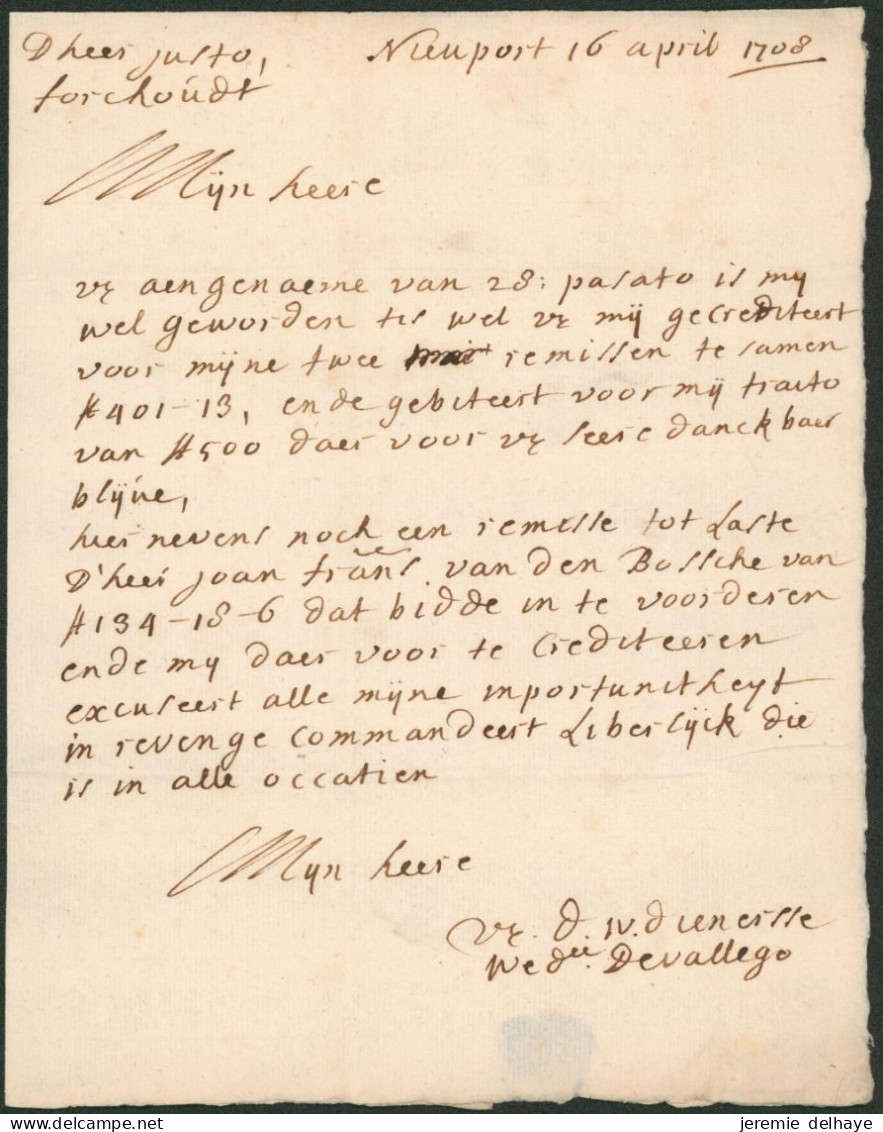 D heer justo, Nieuport 16 april 1708
forchoúdt
Mijn heere
VE aengenaeme van 28: pasato is my
wel geworden tis wel VE mij gecrediteert
voor mijne twee remissen te samen
₶ 401-13, ende gebiteert voor mij traito
van ₶ 500 daer voor VE seere danckbaer
blijve,
hier nevens noch een remisse tot Laste
D'heer joan frans. van den Bossche van
₶ 134-18-6 dat bidde in te voorderen
ende my daer voor te Crediteeren
excuseert alle mijne inportuniteyt
in revenge Commandeert Liberlijck die
is in alle occatien
Mijn heere
VE. d. w. dienersse
Wedue. Devallego
jeremie delhaye